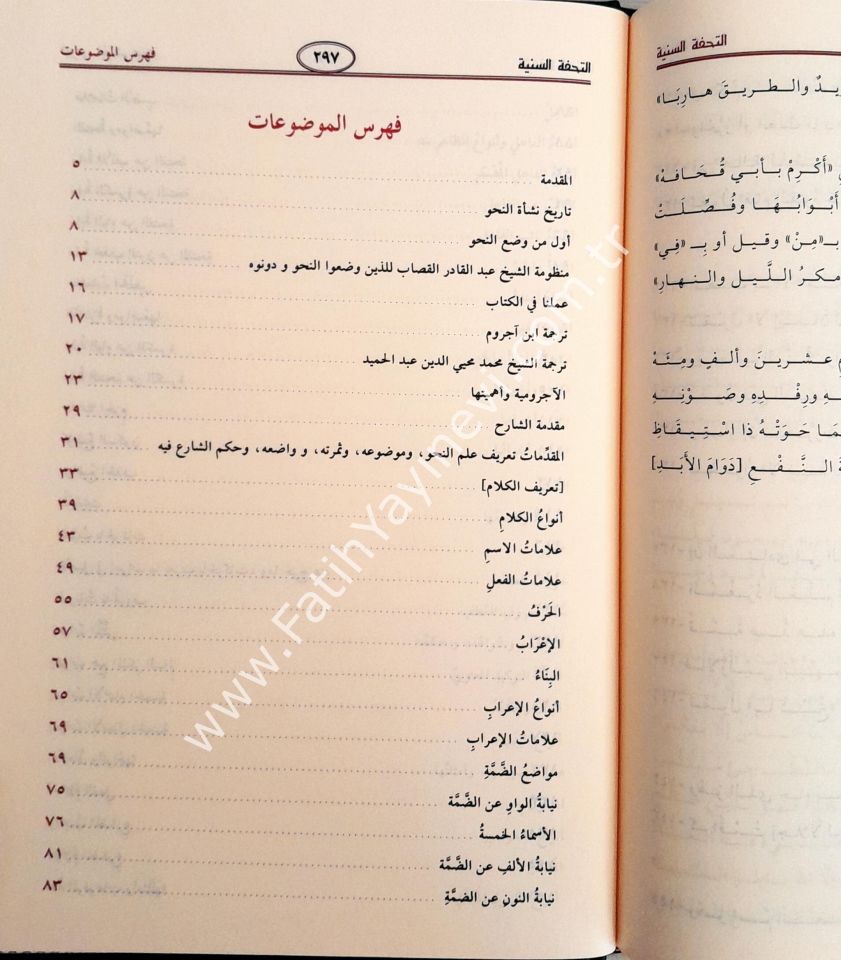 التحفة السنية
٢٩٧
فهرس الموضوعات
فهرس الموضوعات
المقدمة ٥
تاريخ نشأة النحو ٨
أول من وضع النحو ٨
منظومة الشيخ عبد القادر القصاب للذين وضعوا النحو و دونوه ١٣
عملنا في الكتاب ١٦
ترجمة ابن آجروم ١٧
ترجمة الشيخ محمد محيي الدين عبد الحميد ٢٠
الآجرومية وأهميتها ٢٣
مقدمة الشارح ٢٩
المقدِّماتُ تعريف علم النحو، وموضوعه، وثمرته، و واضعه، وحكم الشارع فيه ٣١
[تعريف الكلام] ٣٣
أنواعُ الكلامِ ٣٩
علاماتُ الاسمِ ٤٣
علاماتُ الفعلِ ٤٩
الحَرْفُ ٥٥
الإعْرَابُ ٥٧
البِنَاءُ ٦١
أنواعُ الإعرابِ ٦٥
علاماتُ الإعرابِ ٦٩
مواضعُ الضَّمَّةِ ٦٩
نيابةُ الواوِ عن الضَّمَّة ٧٥
الأسماءُ الخمسةُ ٧٦
نيابةُ الألفِ عن الضَّمَّة ٨١
نيابةُ النونِ عن الضمَّةِ ٨٣
التحفة السنية
والطريقَ هاربَا»
«أَكْرِمْ بأبي قُحَافهْ»
أَبْوَابُهَا وفُصِّلَتْ
بـ«مِنْ» وقيل أو بـ «فِي»
مكرُ اللَّيل والنهارِ»
عشرينَ وألفٍ ومِئَهْ
ورِفْدِهِ وصَوْنِهِ
حَوَتْهُ ذا اسْتِيقَاظِ
النَّفْعِ [دَوَامَ الأَبَدِ]
www.FatihYayinevi.com.tr